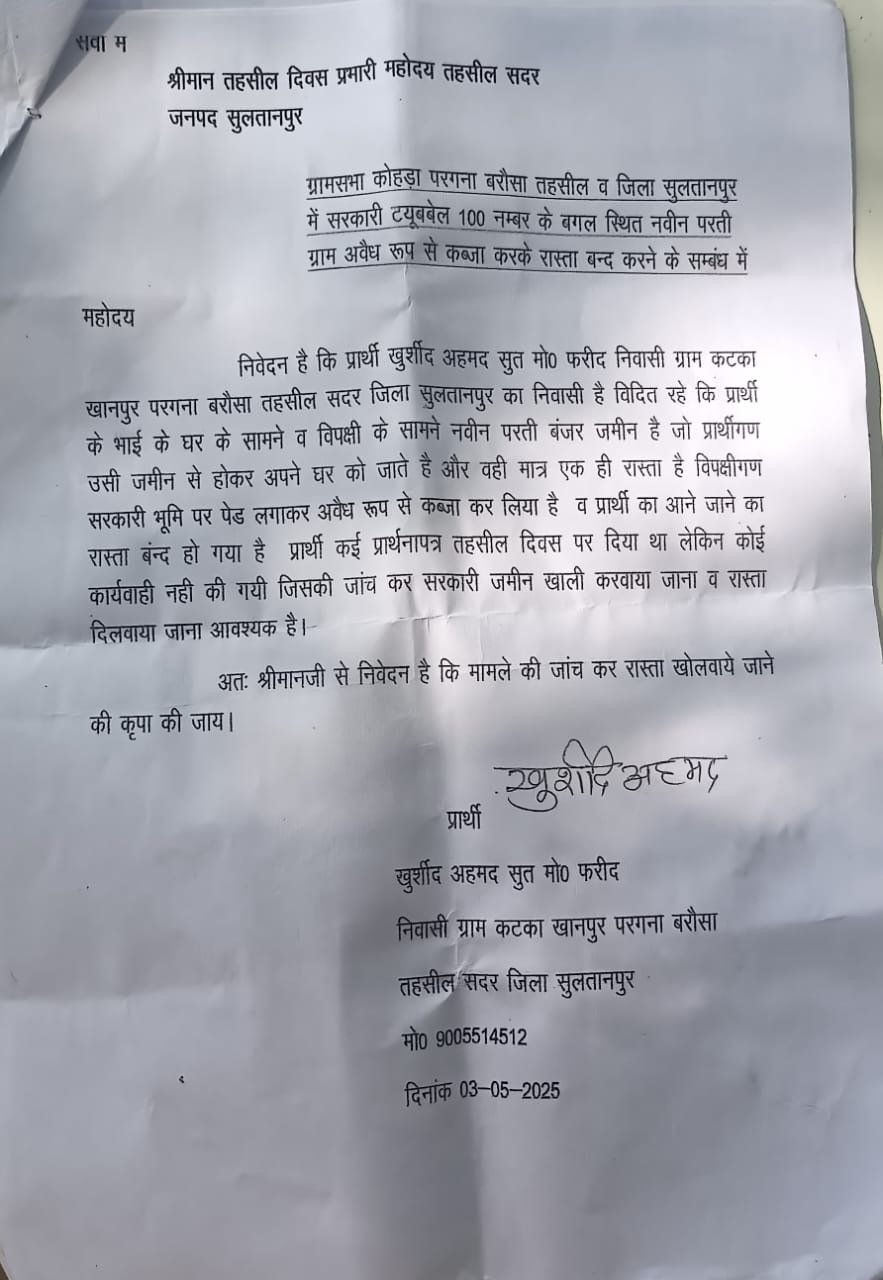 सवा म
श्रीमान तहसील दिवस प्रभारी महोदय तहसील सदर
जनपद सुलतानपुर
ग्रामसभा कोहड़ा परगना बरौसा तहसील व जिला सुलतानपुर
में सरकारी टयूबबेल 100 नम्बर के बगल स्थित नवीन परती
ग्राम अवैध रूप से कब्जा करके रास्ता बन्द करने के सम्बंध में
महोदय
निवेदन है कि प्रार्थी खुर्शीद अहमद सुत मो0 फरीद निवासी ग्राम कटका
खानपुर परगना बरौसा तहसील सदर जिला सुलतानपुर का निवासी है विदित रहे कि प्रार्थी
के भाई के घर के सामने व विपक्षी के सामने नवीन परती बंजर जमीन है जो प्रार्थीगण
उसी जमीन से होकर अपने घर को जाते है और वही मात्र एक ही रास्ता है विपक्षीगण
सरकारी भूमि पर पेड लगाकर अवैध रूप से कब्जा कर लिया है व प्रार्थी का आने जाने का
रास्ता बंन्द हो गया है प्रार्थी कई प्रार्थनापत्र तहसील दिवस पर दिया था लेकिन कोई
कार्यवाही नही की गयी जिसकी जांच कर सरकारी जमीन खाली करवाया जाना व रास्ता
दिलवाया जाना आवश्यक है।
अतः श्रीमानजी से निवेदन है कि मामले की जांच कर रास्ता खोलवाये जाने
की कृपा की जाय।
खुर्शीद अहमद
प्रार्थी
खुर्शीद अहमद सुत मो0 फरीद
निवासी ग्राम कटका खानपुर परगना बरौसा
तहसील सदर जिला सुलतानपुर
मो0 9005514512
दिनांक 03-05-2025